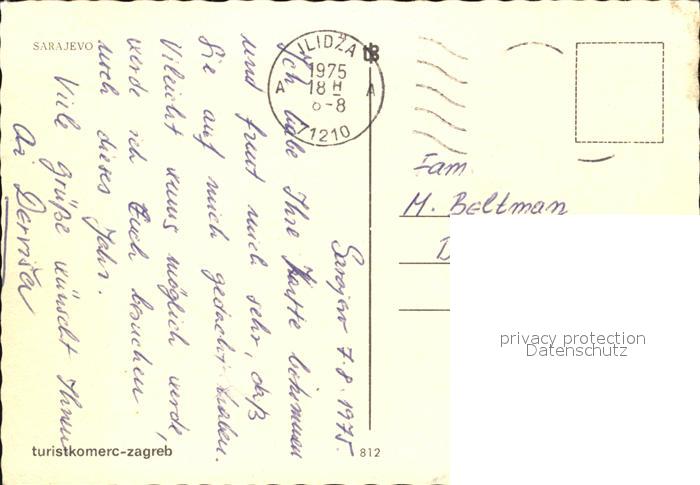 SARAJEVO
Sarajevo 7.8.1975.
Ich habe Ihre Karte bekommen
und freut mich sehr, daß
Sie auf mich gedacht haben.
Vileicht wens möglich werde,
werde ich Euch besuchen
noch dieses Jahr.
Viele grüße wünscht Ihnen
Derviša
ILIDŽA
1975
18 H
8-8
A A
71210
Fam.
M. Beltman
D
privacy protection
Datenschutz
turistkomerc-zagreb
812